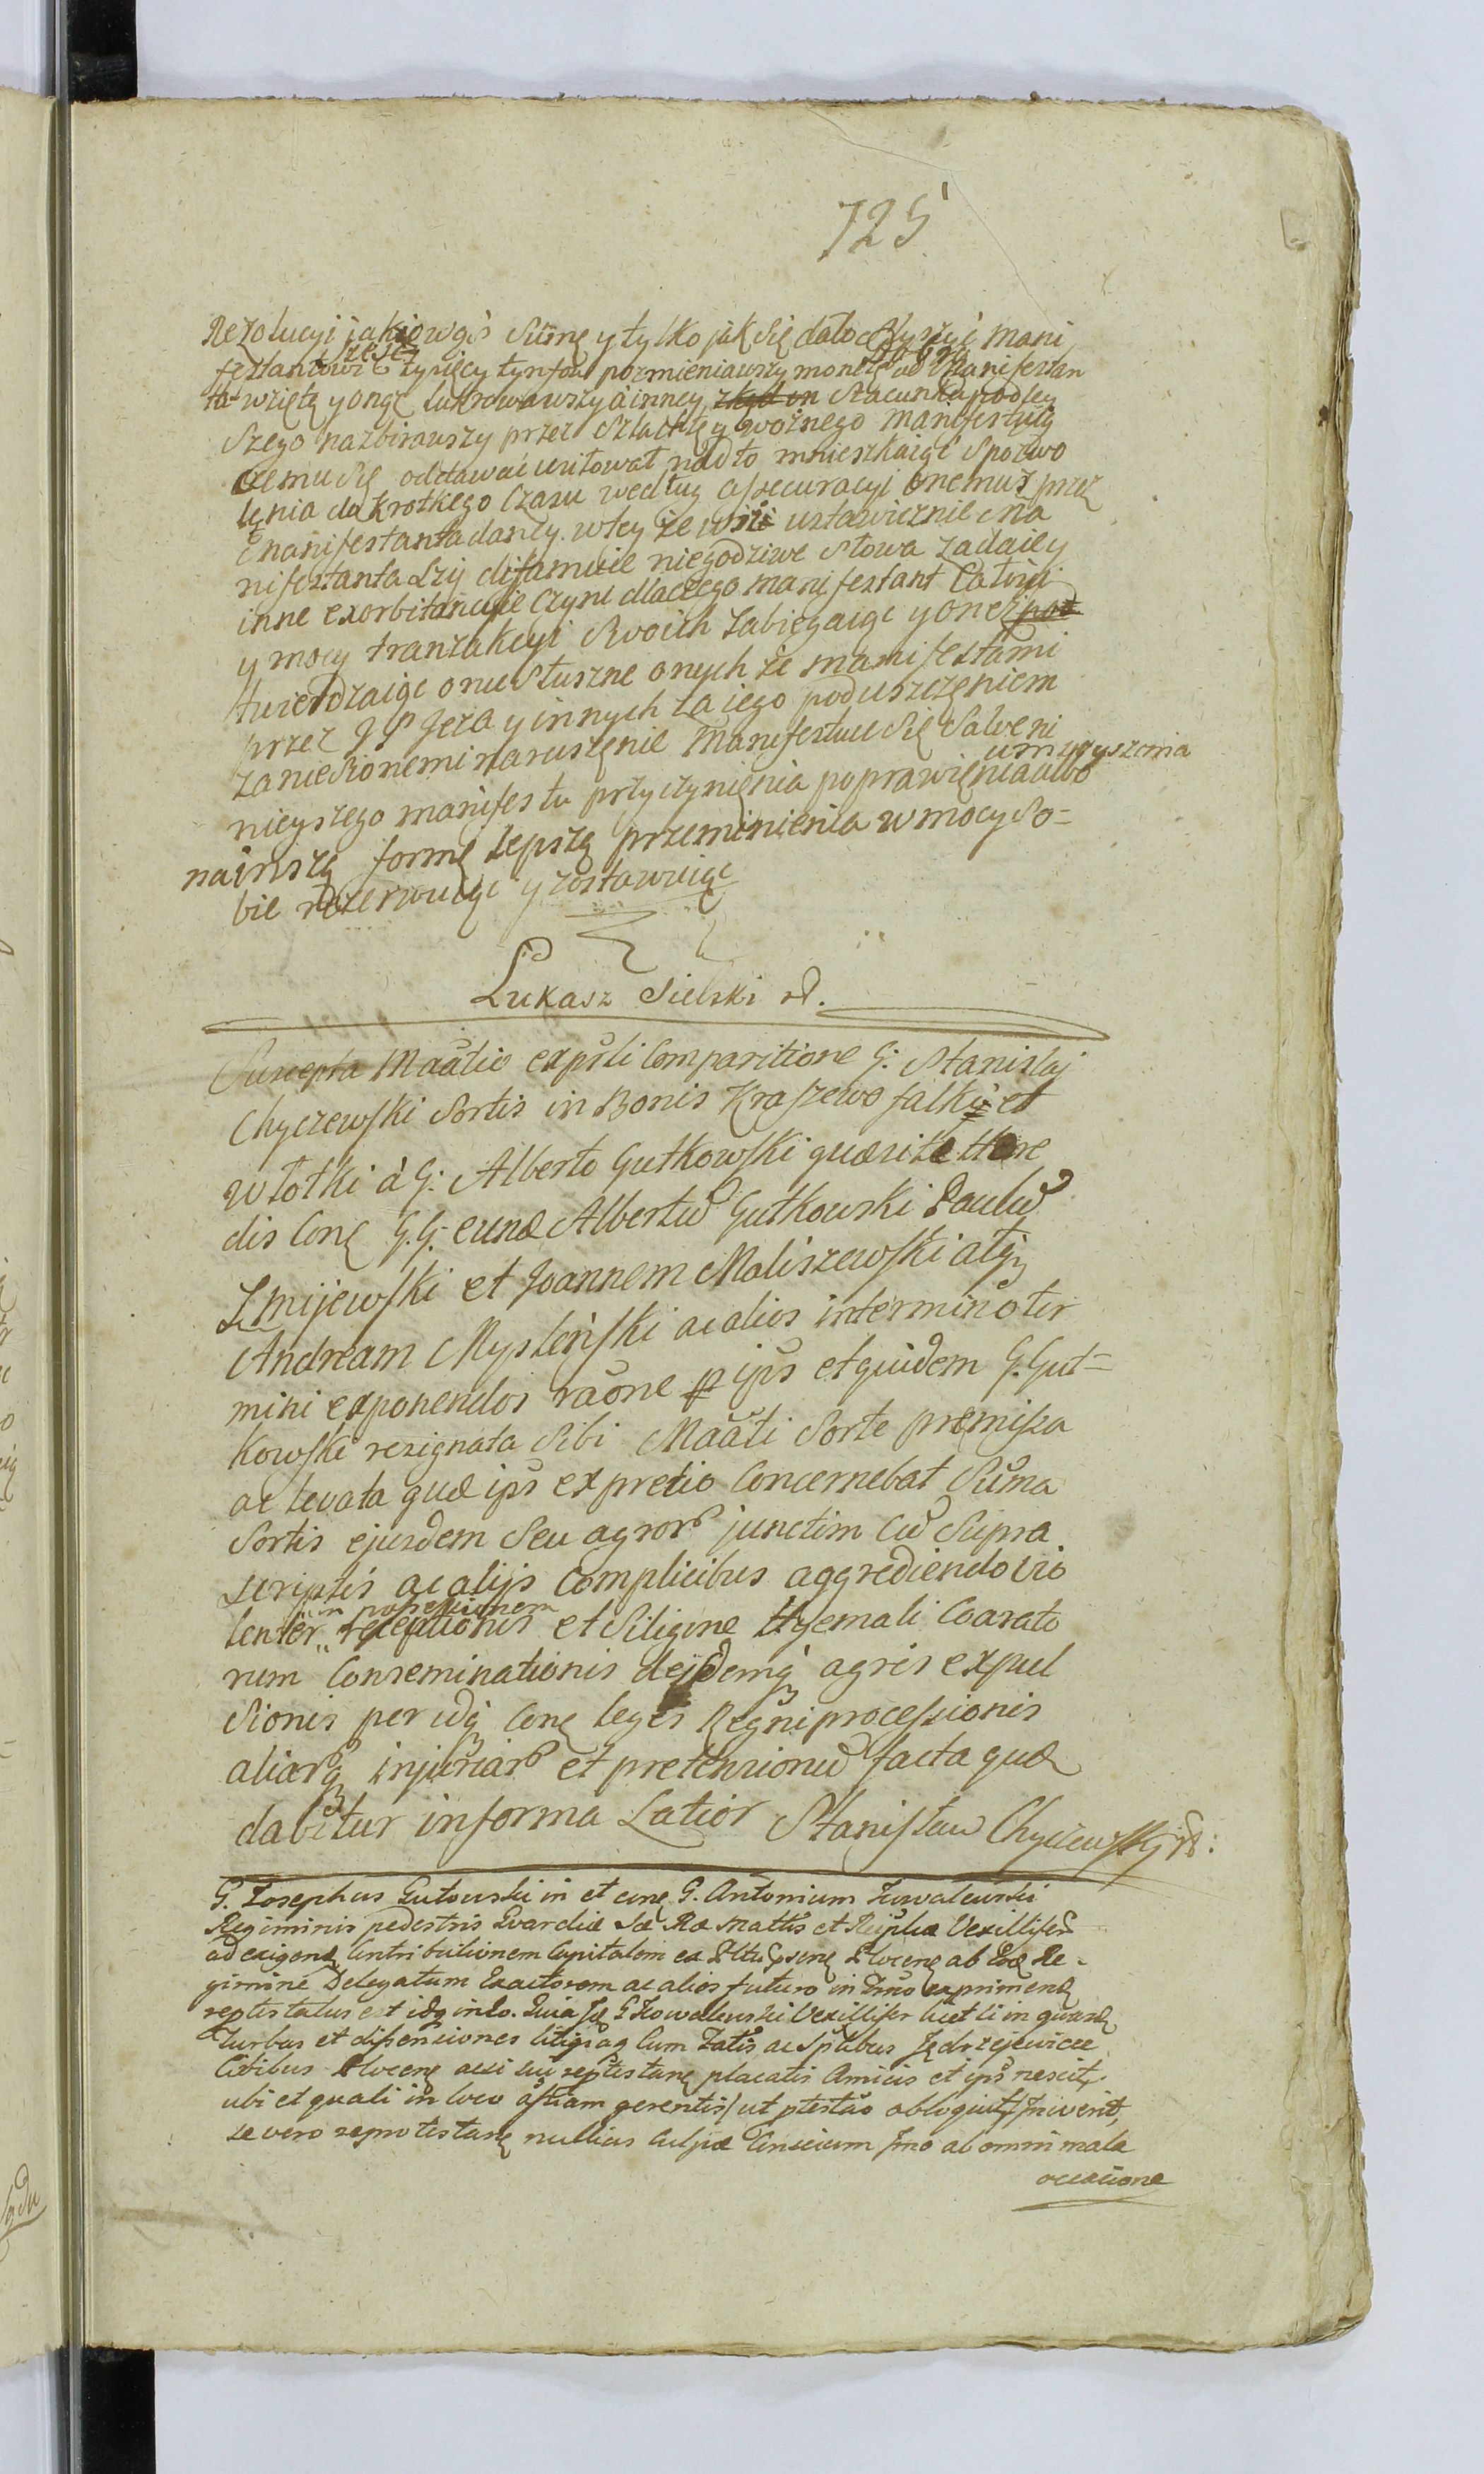 725
Rezolucyi jakiowąś Sumę y tylko jak się dało słyszyć mani
festantowi sześć tysięcy tynfow pozmieniawszy monetę od Manifestan
ta wziętą y onąę lukrowawszy a inney szacunku podley
szego nazbirawszy przez Szlachtę y woźnego manifestuią
cemu się oddawać usiłował nadto mnieszkaiąc Spozwo
lęnia do krotkego czasu według assecuracyi onemuż przez
manifestanta daney. wtey że wsi ustawicznie ma
nifestanta Lży difamuie niegodziwe słowa zadaie y
inne exorbitancyje czyni dlaczego manifestant całości
y mocy tranzakcyi Swoich zabiegaiąc y onez pot
twierdzaiąc o nie słuszne onych że manifestami
przez JP Jeża y innych za iego poduszczęniem
zaniesionemi naruszęnie Manifestuie Się Salwę ni
nieyszego manifestu przyczynięnia poprawięnia albo umnieyszenia
na inszą formę lepszę przeminienia w mocy So=
bie rezerwuiąc y zostawuiąc
Łukasz Sielski
Suscepta Maãtio expãti Comparitione G: Stanislaj
Chyczewski Sortis in Bonis Kraszewo falki et
Włotki à G: Alberto Gutkowski quæsitæ Hære
dis Conę G.G. eund Albertũ Gutkowski Paulũ
Zmijewski et Joannem Maliszewski atq
Andream Mysleński ac alios in termino ter
mini exponendos raõne p ips et quidem G. Gut=
kowski resignata Sibi Maãti Sorte pręmissa
ac levata quæ ips ex pretio Concernebat Suma
Sortis ejusdem Seu agror junctim Cũ Supra
scriptis ac alijs Complicibus aggrediendo vio
lenter in possessionem receptionis et Siligine Hyemali Coarato
rum Conseminationis deijsdemq agris expul
Sionis per idq Conę leges Regni processionis
aliarq injuriar et pretensionũ facta quæ
dabitur in forma Latior Stanisław Chyczewski
G. Josephus Gutowski in et conę G. Antonium Kowalewski
Regiminis pedestris Gvardiæ Sæ Ræ Mattis et Reiplcæ Vexilliferũ
ad exigenđ Contributionem Capitalem ex Plocenę ab Eođ Re=
gimine Delegatum Exactorem ac alios futuro in Tmo exprimenđ
reptestatus est idq in eo. Quia G Kowalewski Vexillifer licet
turbas et dissensiones litigia Cum Jędrzejewicze
Civibus Plocenę reptestanę placatis Amicis et ips nescit
ubi et quali in loco gerentis/ ut ptestão obloquit/ Inivent,
se vero reprotestanę nullius Culpæ Conscium Imo ab omni mala
occasione